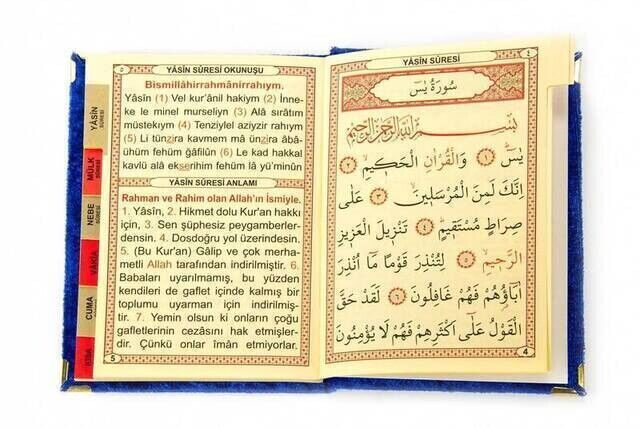 YÂSİN SÛRESİ
٤
سُورَةُ يٰسٓ
بِسْمِ اللّٰهِ الرَّحْمٰنِ الرَّحِيمِ
يٰسٓ ﴿١﴾ وَالْقُرْاٰنِ الْحَكِيمِ ﴿٢﴾
اِنَّكَ لَمِنَ الْمُرْسَلِينَ ﴿٣﴾ عَلٰى
صِرَاطٍ مُسْتَقِيمٍ ﴿٤﴾ تَنْزِيلَ الْعَزِيزِ
الرَّحِيمِ ﴿٥﴾ لِتُنْذِرَ قَوْمًا مَٓا اُنْذِرَ
اٰبَٓاؤُهُمْ فَهُمْ غَافِلُونَ ﴿٦﴾ لَقَدْ حَقَّ
الْقَوْلُ عَلٰٓى اَكْثَرِهِمْ فَهُمْ لَا يُؤْمِنُونَ
4
٥
YÂSİN SÛRESİ OKUNUŞU
Bismillâhirrahmânirrahıym.
Yâsîn (1) Vel kur'ânil hakiym (2) İnne-
ke le minel murseliyn (3) Alâ sıratım
müstekıym (4) Tenziylel aziyzir rahıym
(5) Li tünzira kavmem mâ ünzira âbâ-
ühüm fehüm ğâfilûn (6) Le kad hakkal
kavlü alâ ekserihim fehüm lâ yü'minûn
YÂSİN SÛRESİ ANLAMI
Rahman ve Rahim olan Allah'ın İsmiyle.
1. Yâsîn, 2. Hikmet dolu Kur'an hakkı
için, 3. Sen şüphesiz peygamberler-
densin. 4. Dosdoğru yol üzerindesin.
5. (Bu Kur'an) Gâlip ve çok merha-
metli Allah tarafından indirilmiştir. 6.
Babaları uyarılmamış, bu yüzden
kendileri de gaflet içinde kalmış bir
toplumu uyarman için indirilmiş-
tir. 7. Yemin olsun ki onların çoğu
gafletlerinin cezasını hak etmişler-
dir. Çünkü onlar îmân etmiyorlar.
5
YÂSİN SÛRESİ
MÜLK SÛRESİ
NEBE SÛRESİ
VÂKIA
CUMA
KISA